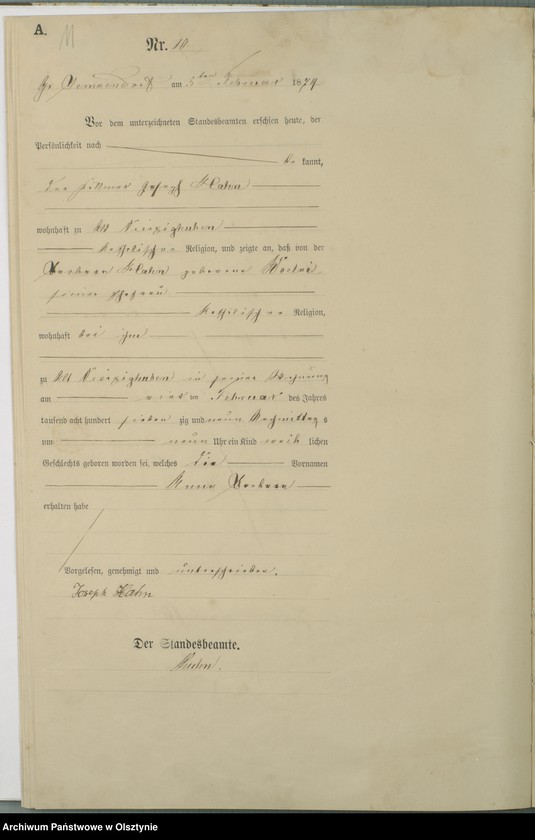 A.
11
Nr. 10
am 5ten Februar 1879
Vor dem unterzeichneten Standesbeamten erschien heute, der
Persönlichkeit nach
be kannt,
der Joseph Hahn
wohnhaft zu Alt Vierzighuben
katholischer Religion, und zeigte an, daß von der
Barbara Hahn geborene
seiner Ehefrau
katholischer Religion,
wohnhaft bei ihm
zu Alt Vierzighuben in seiner Wohnung
am vierten Februar des Jahres
tausend acht hundert sieben zig und neun Nachmittag s
um neun Uhr ein Kind weib lichen
Geschlechts geboren worden sei, welches die Vornamen
Anna Barbara
erhalten habe
Vorgelesen, genehmigt und unterschrieben.
Joseph Hahn
Der Standesbeamte.
Archiwum Państwowe w Olsztynie